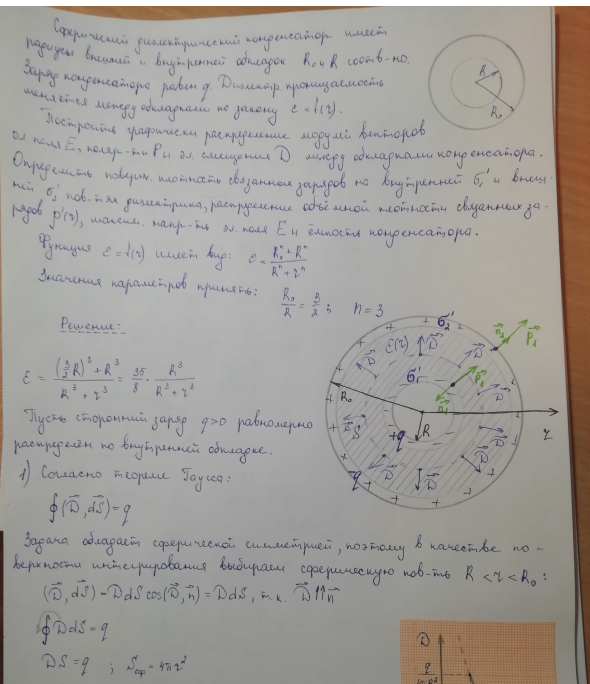 Сферический диэлектрический конденсатор имеет
радиусы внешней и внутренней обкладок R₀ и R соотв-но.
Заряд конденсатора равен q. Диэлектр. проницаемость
меняется между обкладками по закону ε = f(r).
Построить графически распределение модулей векторов
эл. поля E, поляр-ти P и эл. смещения D между обкладками конденсатора.
Определить поверхн. плотность связанных зарядов на внутренней σ₁' и внеш-
ней σ₂' пов-тях диэлектрика, распределение объёмной плотности связанных за-
рядов ρ'(r), максим. напр-ть эл. поля E и ёмкость конденсатора.
Функция ε = f(r) имеет вид: ε = (R₀ⁿ + Rⁿ)/(Rⁿ + rⁿ)
Значения параметров принять: R₀/R = 3/2; n = 3
Решение:
ε = ((3/2 R)³ + R³)/(R³ + r³) = 35/8 · R³/(R³ + r³)
Пусть сторонний заряд q>0 равномерно
распределён по внутренней обкладке.
1) Согласно теореме Гаусса:
∮(D⃗, dS⃗) = q
Задача обладает сферической симметрией, поэтому в качестве по-
верхности интегрирования выбираем сферическую пов-ть R < r < R₀:
(D⃗, dS⃗) = D dS cos(D⃗, n⃗) = D dS, т.к. D⃗ ↑↑ n⃗
∮ D dS = q
DS = q ; Sсф = 4πr²
R
R₀
σ₂'
ε(r)
σ₁'
D⃗
D⃗
n⃗₂
P⃗₂
n⃗₁
R₀
R
+q
S
D⃗
D⃗
D⃗
r
D
q